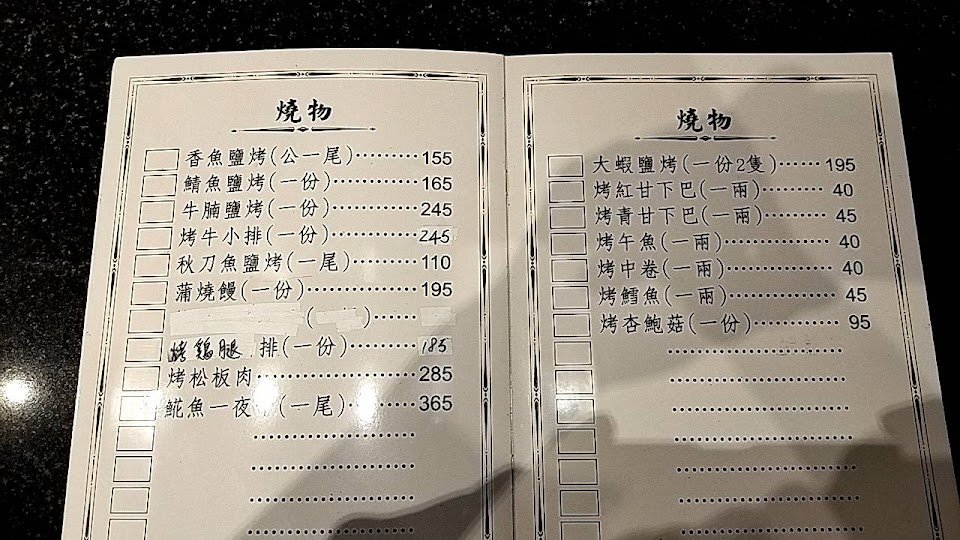 燒物
香魚鹽烤(公一尾)………155
鯖魚鹽烤(一份)…………165
牛腩鹽烤(一份)…………245
烤牛小排(一份)…………245
秋刀魚鹽烤(一尾)………110
蒲燒饅(一份)……………195
( )……
烤鷄腿 排(一份)…………185
烤松板肉…………………285
魚一夜 (一尾)…………365
燒物
大蝦鹽烤(一份2隻)……195
烤紅甘下巴(一兩)………40
烤青甘下巴(一兩)………45
烤午魚(一兩)……………40
烤中卷(一兩)……………40
烤鱈魚(一兩)……………45
烤杏鮑菇(一份)…………95